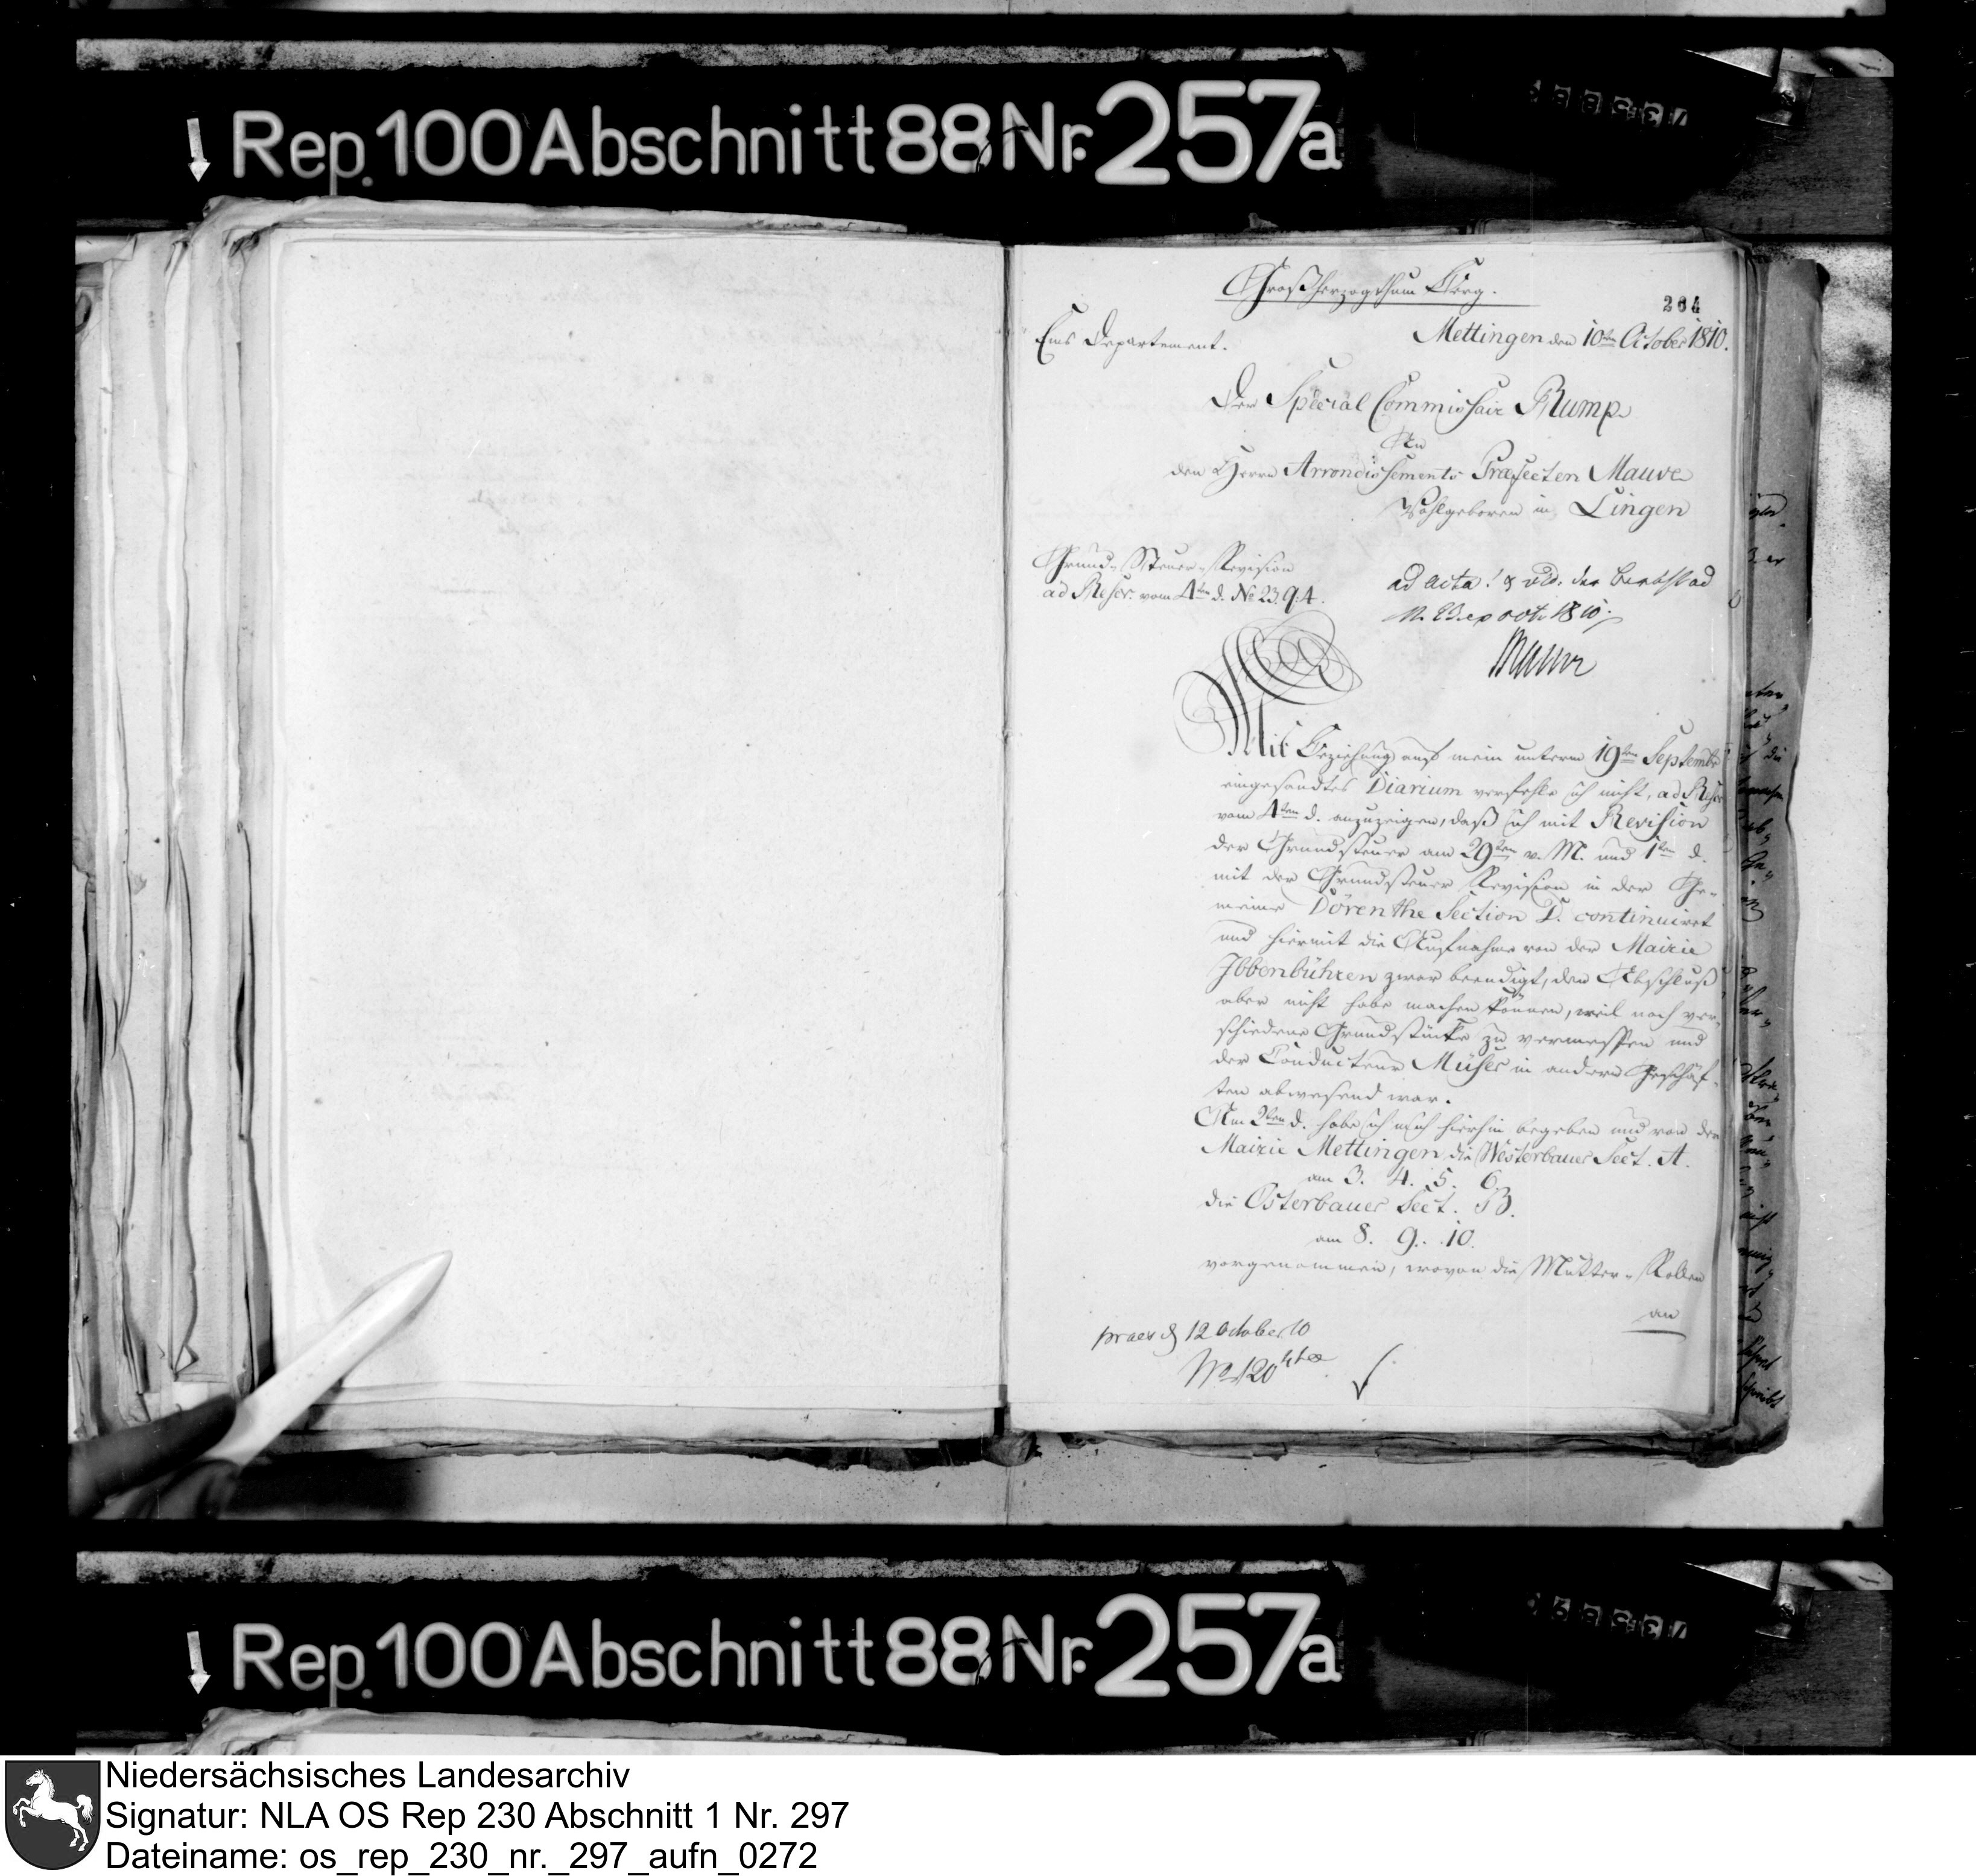 Rep. 100 Abschnitt 88 Nr. 257a
Großherzogthum Berg.
264
Ems Departement.
Mettingen den 10ten October 1810.
Der Special Commissair Rump
An
den Herrn Arrondissements Præfecten Mauve
Wohlgeboren in Lingen
Grund-Steuer-Revision
ad Rescr. vom 4ten d. No 23.94.
ad acta! & vid. den
1810.
Mauve
Mit Beziehung auf mein unterm 19ten Septembr
eingesandtes Diarium verfehle ich nicht, ad Rescr
vom 4ten d. anzuzeigen, daß ich mit Revision
der Grundsteuer am 29ten v. M. und 1ten d.
mit der Grundsteuer Revision in der Ge-
meine Dörenthe Section D. continuiret
und hiermit die Aufnahme von der Mairie
Ibbenbühren zwar beendigt, den Abschluß
aber nicht habe machen können, weil noch ver-
schiedene Grundstücke zu vermessen und
der Conducteur Müser in andern Geschäf-
ten abwesend war.
Am 2ten d. habe ich mich hierhin begeben und von der
Mairie Mettingen, die Westerbauer Sect. A.
am 3. 4. 5. 6.
die Osterbauer Sect. B.
am 8. 9. 10.
vorgenommen, wovon die Mutter-Rollen
an
praes d 12 October 10
No 120
Rep. 100 Abschnitt 88 Nr. 257a
Niedersächsisches Landesarchiv
Signatur: NLA OS Rep 230 Abschnitt 1 Nr. 297
Dateiname: os_rep_230_nr._297_aufn_0272